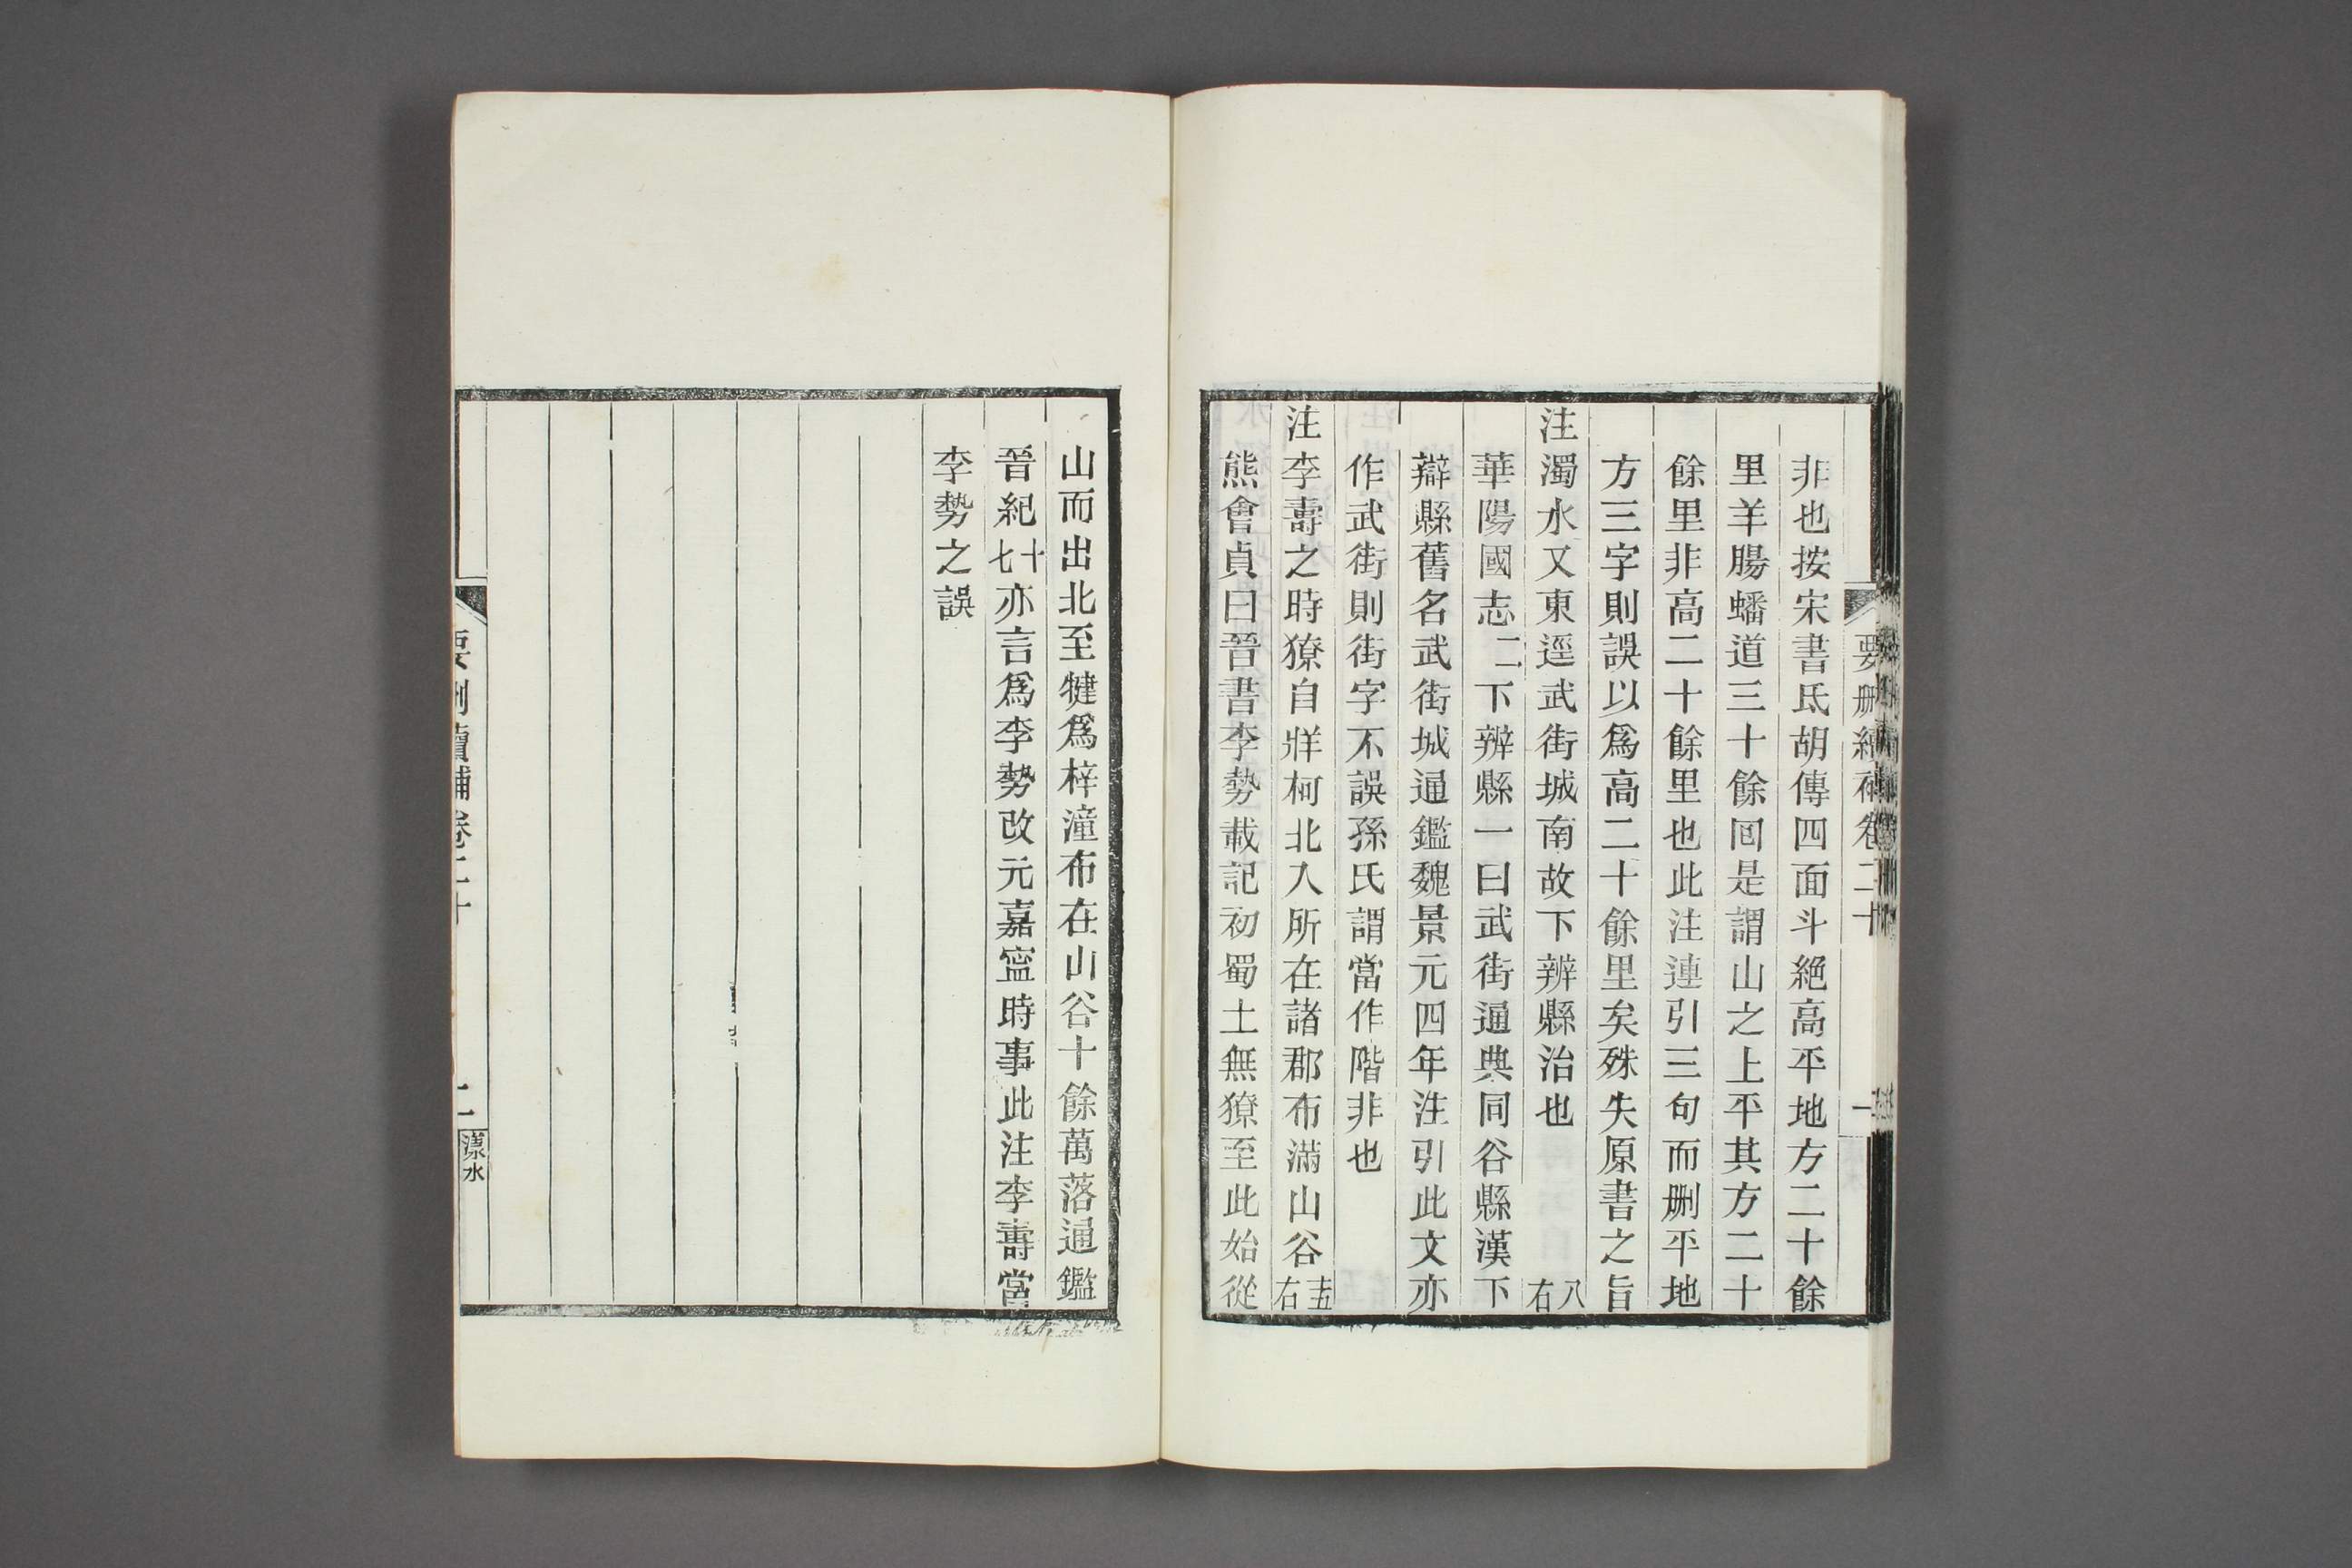 要刪續補卷二十
一
非也按宋書氐胡傳四面斗絕高平地方二十餘
里羊腸蟠道三十餘囘是謂山之上平其方二十
餘里非高二十餘里也此注連引三句而刪平地
方三字則誤以爲高二十餘里矣殊失原書之旨
注濁水又東逕武街城南故下辨縣治也八右
華陽國志二下辨縣一曰武街通典同谷縣漢下
辯縣舊名武街城通鑑魏景元四年注引此文亦
作武街則街字不誤孫氏謂當作階非也
注李壽之時獠自牂柯北入所在諸郡布滿山谷十五右
熊會貞曰晉書李勢載記初蜀土無獠至此始從
山而出北至犍爲梓潼布在山谷十餘萬落通鑑
晉紀十七亦言爲李勢改元嘉寍時事此注李壽當
李勢之誤
要刪續補卷二十
二
漾水